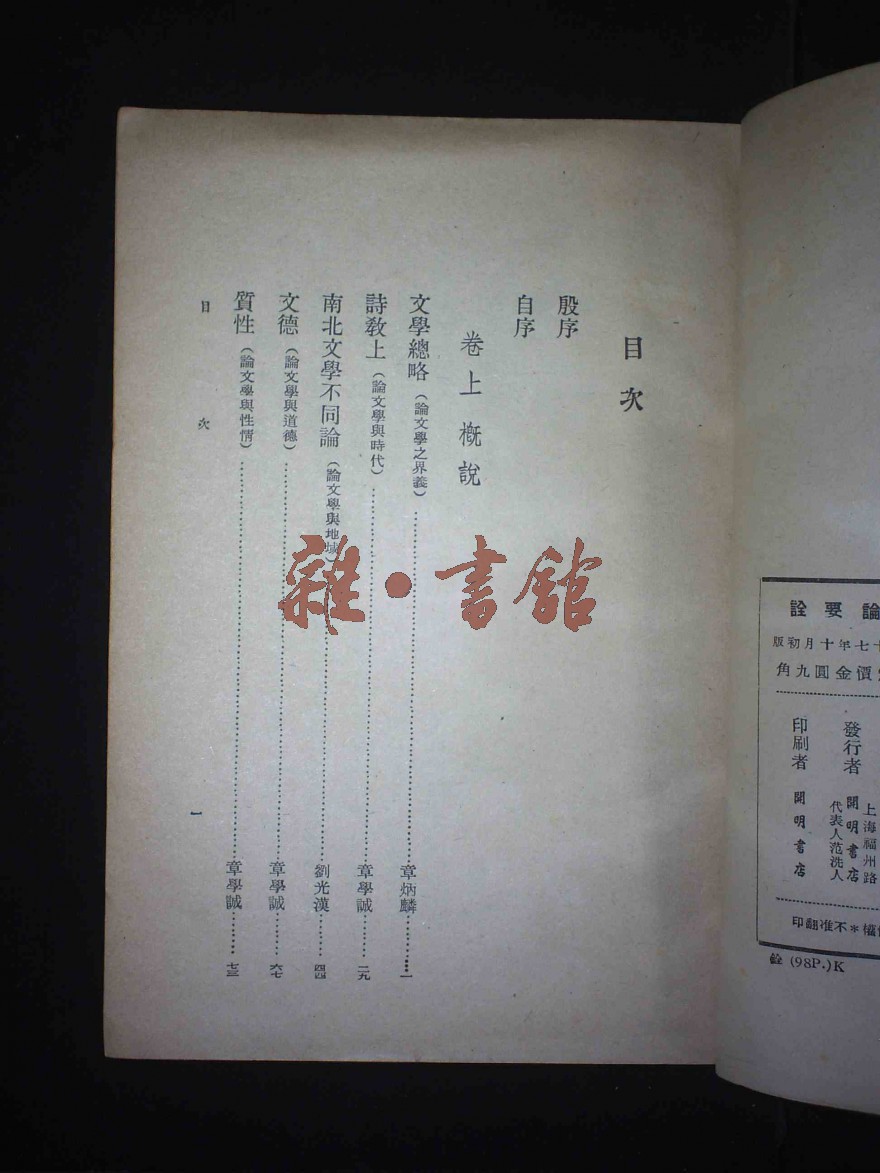 目次
殷序
自序
卷上 概說
文學總略(論文學之界義)………章炳麟………一
詩教上(論文學與時代)………章學誠………二九
南北文學不同論(論文學與地域)………劉光漢………四四
文德(論文學與道德)………章學誠………六七
質性(論文學與性情)………章學誠………七三
目次 一
雜·書館
論要詮
七年十月初版
價金圓九角
上海福州路
發行者 開明書店
代表人范洗人
印刷者 開明書店
權*不准翻印
(98P.)K